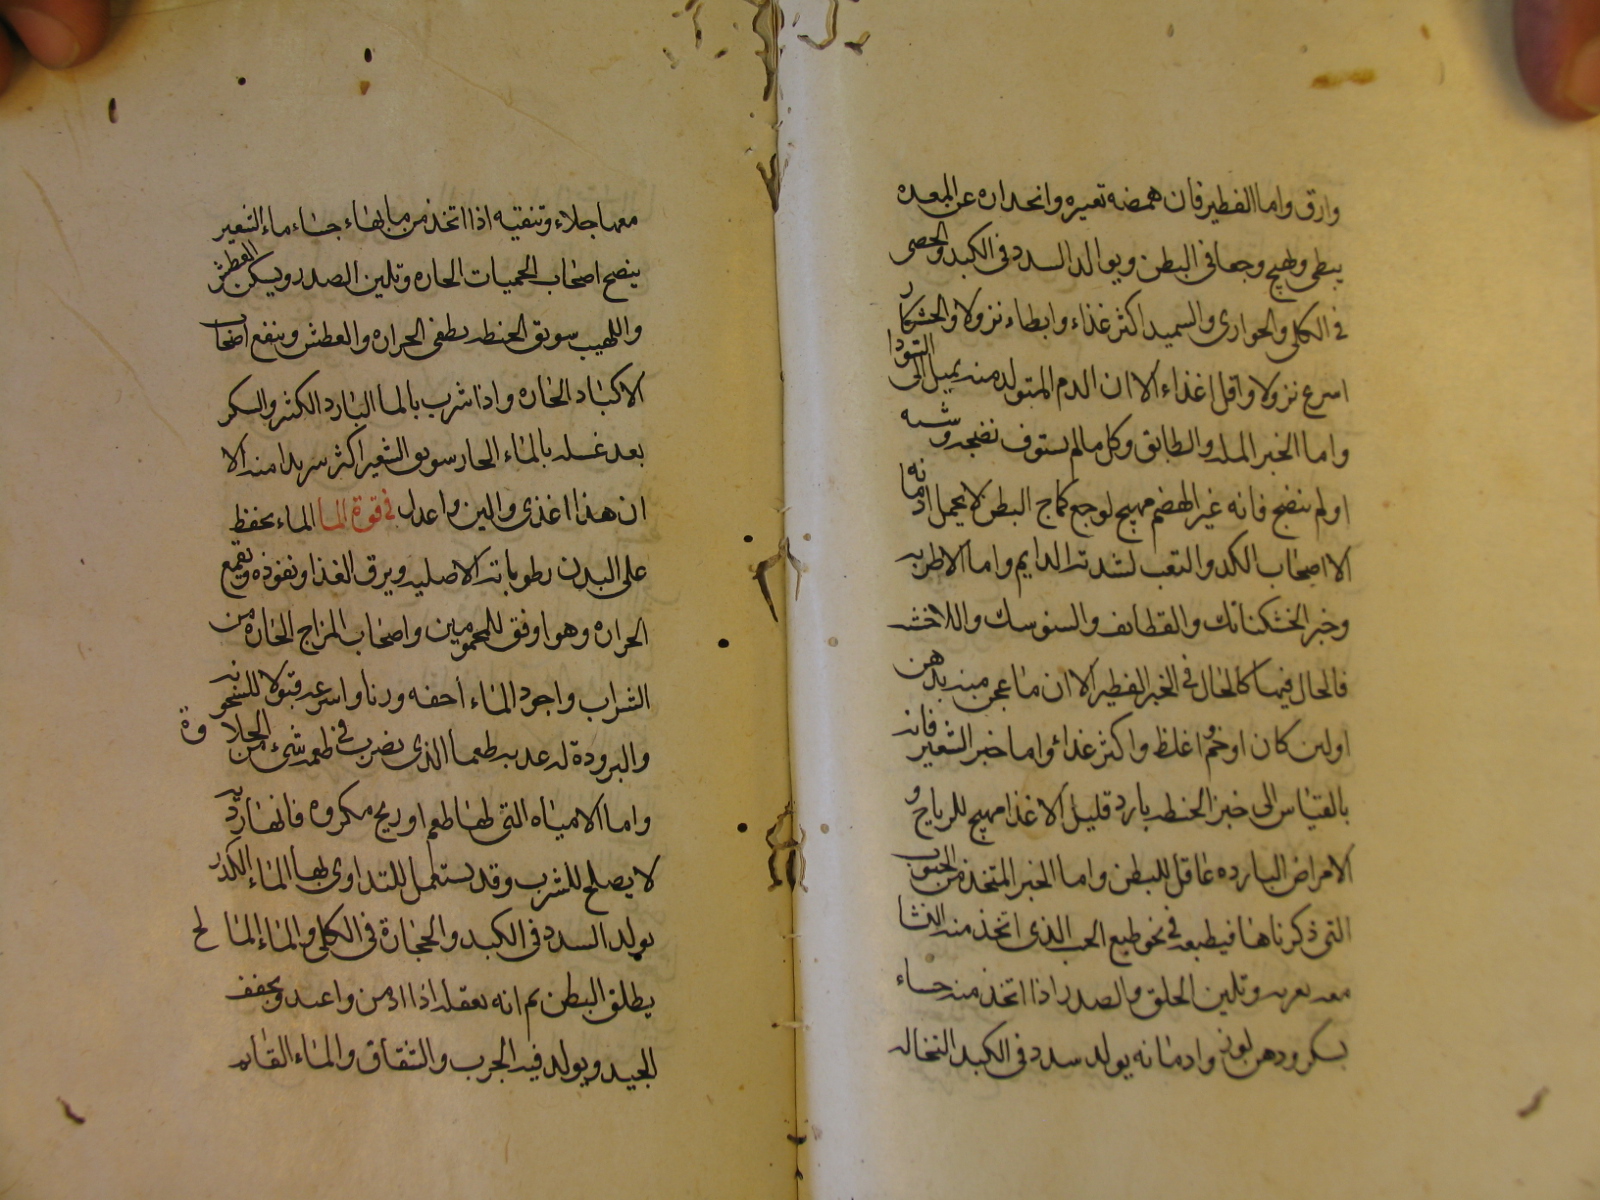 وارق واما الفطير فان همضه تعيره وانحداره عن المعده
يبطى ويهيج وجعا فى البطن ويولد السدد فى الكبد والحصى
فى الكلى والحوارى والسميد اكثر غذاء وابطاء نزولا والخشكار
اسرع نزولا واقل اغذاء الا ان الدم المتولد منه يميل الى السودا
واما الخبز المله والطابق وكل مالم يستوف نضجه وشيه
اولم ينضج فانه غير الهضم مهيج لوجع البطن لا يحمل ادمانه
الا اصحاب الكد والتعب لشدته الدايم واما الاطريه
وخبز الخشكنانك والقطائف والسنوسك
فالحال فيها كالحال فى الخبز الفطير الا ان ما عجن منه بدهن
اولبن كان اوخم واغلظ واكثر غذاء واما خبز الشعير فانه
بالقياس الى خبز الحنطه بارد قليل الاغذا مهيج للرياح و
الامراض البارده عاقل للبطن واما الخبز المتخذ من الحبوب
التى ذكرناها فيطبعه فى نحو طبع الحب الذى اتخذ منه النشا
معه تغريه وتلين الحلق والصدر اذا اتخذ منه حساء
بسكر ودهن لوز وادمانه يولد سدد فى الكبد النخاله
معها جلاء وتنقيه اذا اتخذ من مابها حساء ماء الشعير
ينصح اصحاب الحميات الحاره وتلين الصدر ويسكن العطش
واللهيب سويق الحنطه يطفى الحراره والعطش وينفع اصحاب
الاكباد الحاره واذا شرب بالما البارد الكثير والسكر
بعد غسله بالماء الحار سويق الشعير اكثر تبريدا منه الا
ان هذا اغذى والين واعدل فى قوة الما الماء يحفظ
على البدن رطوباته الاصليه ويرق الغذا ونفوذه ويقمع
الحراره وهو اوفق للمحمومين واصحاب المزاج الحاره من
الشراب واجود الماء اخفه وزنا واسرعه قبولا للسخونه
والبرودة له عذبه طعما الذى يضرب فى طعمه شئ من الحلاوة
واما الامياه التى لها طعم او ريح مكروه فانها رديه
لا يصلح للشرب وقد يستعمل للتداوى بها الماء الكدر
يولد السدد فى الكبد والحجارة فى الكلى والماء المالح
يطلق البطن ثم انه يعقله اذا ادمن واعبد ويجفف
الجيد ويولد فيه الجرب والشقاق والماء القائم